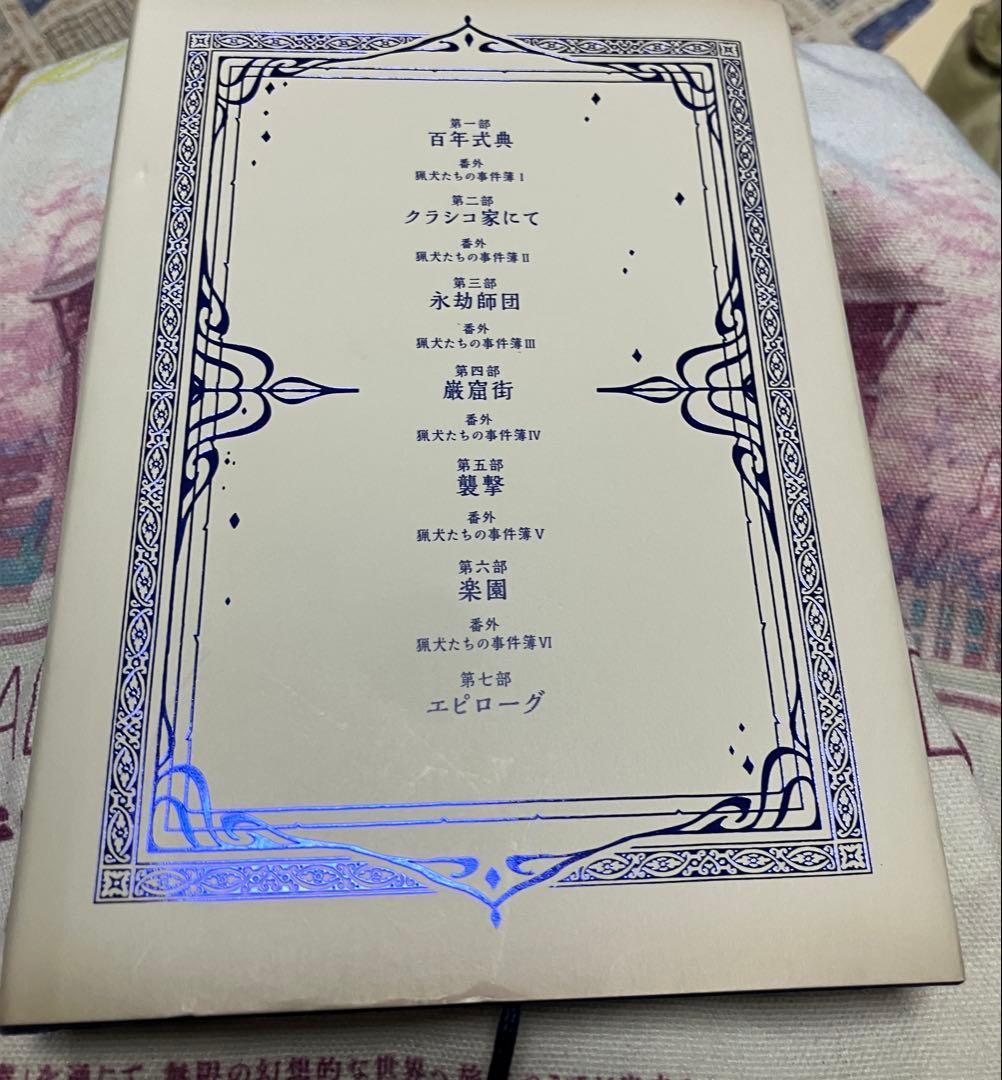 第一部
百年式典
番外
猟犬たちの事件簿Ⅰ
第二部
クラシコ家にて
番外
猟犬たちの事件簿Ⅱ
第三部
永劫師団
番外
猟犬たちの事件簿Ⅲ
第四部
巌窟街
番外
猟犬たちの事件簿Ⅳ
第五部
襲撃
番外
猟犬たちの事件簿Ⅴ
第六部
楽園
番外
猟犬たちの事件簿Ⅵ
第七部
エピローグ
を通じて、無限の幻想的な世界へ